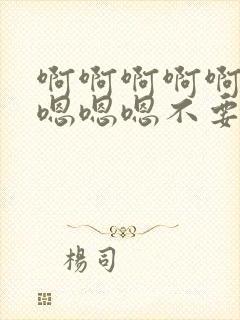 啊啊啊啊啊
嗯嗯嗯不要
楊司